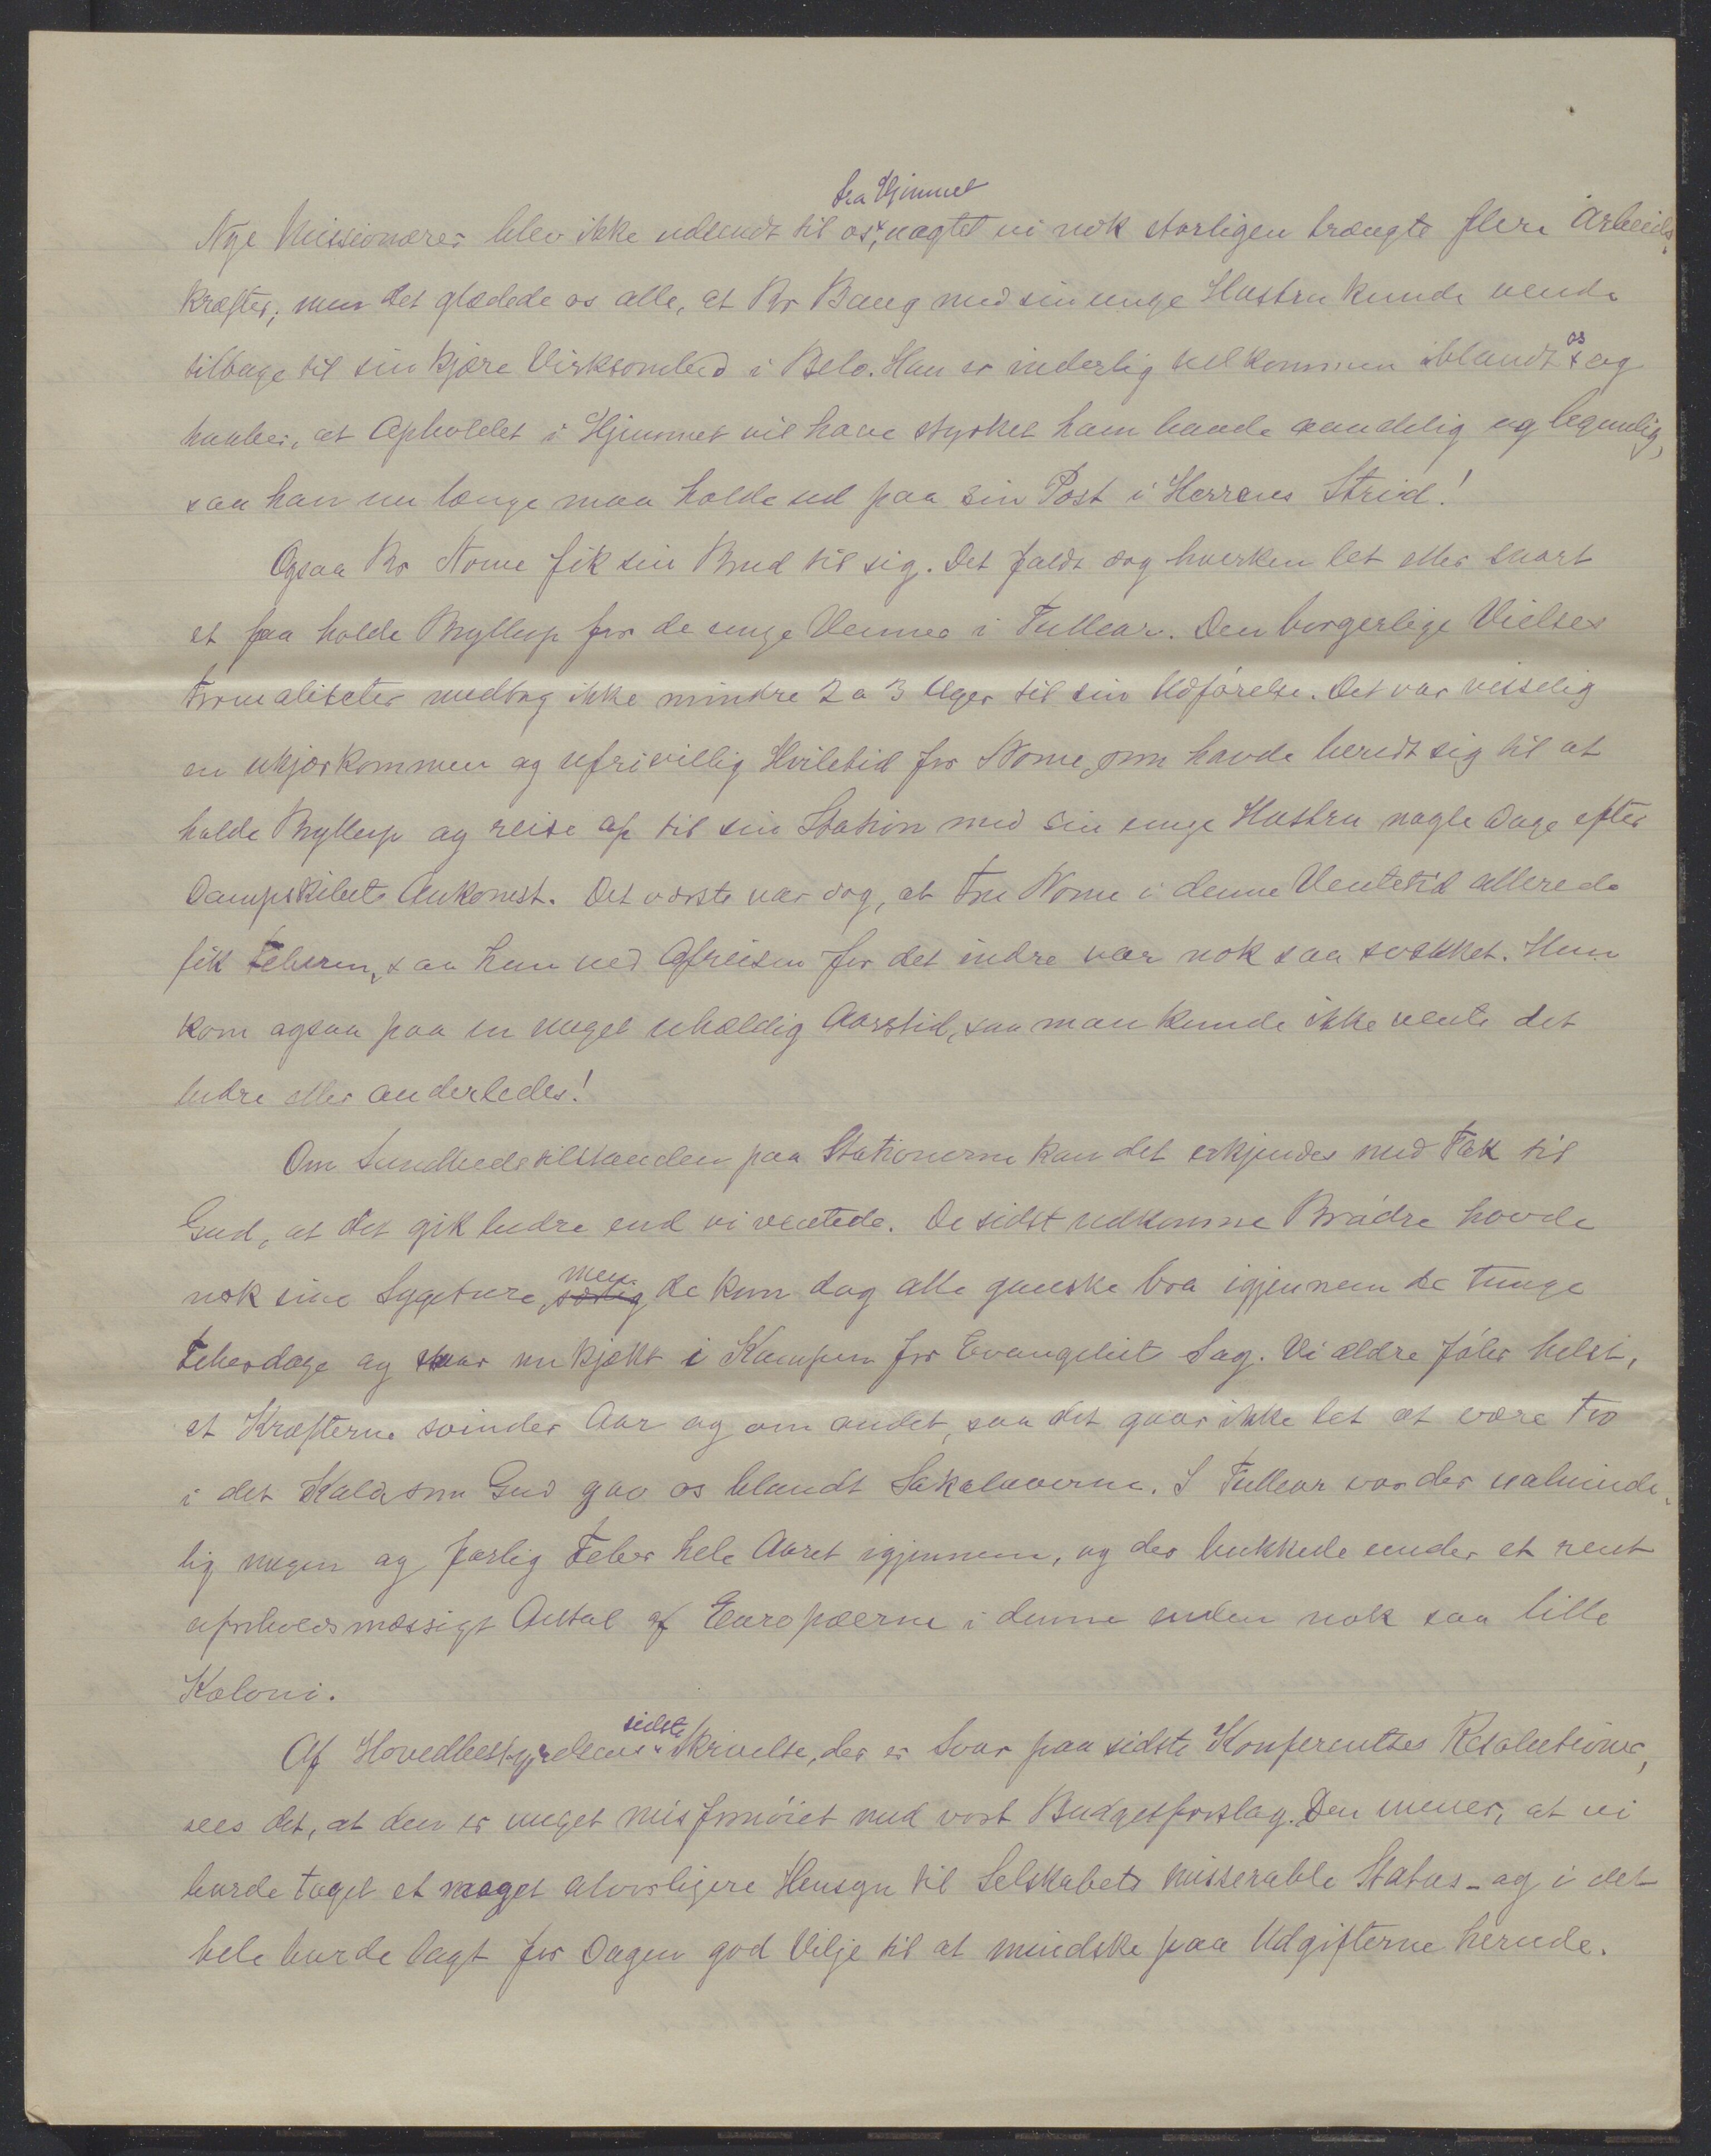 fra Hjemmet
Nye Missionærer blev ikke udsendt til os, uagtet vi nok storligen trængte flere Arbeids-
kræfter; men det glædede os alle, at Br Bang med sin unge Hustru kunde vende
tilbage til sin kjære Virksomhed i Belo. Han er inderlig velkommen iblandt os og
haaber, at Opholdet i Hjemmet vil have styrket ham baade aandelig og legemlig,
saa han nu længe maa holde ud paa sin Post i Herrens Strid!
Ogsaa Br Nome fik sin Brud til sig. Det faldt dog hverken let eller snart
at faa holde Bryllup for de unge Venner i Tullear. Den borgerlige Vielses
Formaliteter medtog ikke mindre 2 a 3 Uger til sin Udførelse. Det var visselig
en ukjærkommen og ufrivillig Hviletid for Nome, som havde beredt sig til at
holde Bryllup og reise op til sin Station med sin unge Hustru nogle Dage efter
Dampskibets Ankomst. Det værste var dog, at Fru Nome i denne Ventetid allerede
fik Feberen, saa hun ved Afreisen for det indre var nok saa svækket. Hun
kom ogsaa paa en meget uheldig Aarstid, saa man kunde ikke vente det
bedre eller anderledes!
Om Sundhedstilstanden paa Stationerne kan det erkjendes med Tak til
Gud, at det gik bedre end vi ventede. De sidst udkomne Brødre havde
nok sine Sygeture, men de kom dog alle ganske bra igjennem de tunge
Feberdage og staar nu kjækt i Kampen for Evangeliets Sag. Vi ældre føler helst,
at Kræfterne svinder Aar og om andet, saa det gaar ikke let at være tro
i det Kald som Gud gav os blandt Sakalaverne. I Tullear var der ualminde-
lig megen og farlig Feber hele Aaret igjennem, og der bukkede under et rent
uforholdsmæssigt Antal af Europæerne i denne enden nok saa lille
Koloni.
Af Hovedbestyrelsens sidste Skrivelse, der er Svar paa sidste Konferentses Resolutioner,
sees det, at den er meget misfornøiet med vort Budgetforslag. Den mener, at vi
burde taget et meget alvorligere Hensyn til Selskabets misserable Status - og i det
hele burde lagt for Dagen god Vilje til at mindske paa Udgifterne herude.